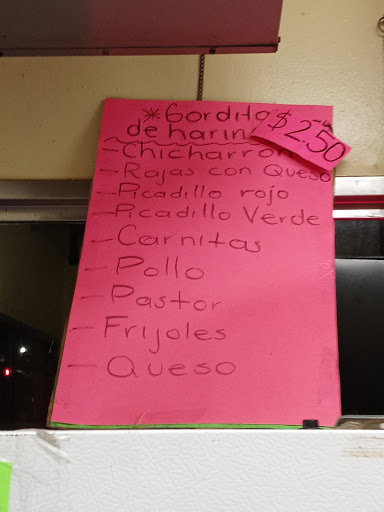 *Gorditas
de harina
$2.50
- Chicharron
- Rajas con Queso
- Picadillo rojo
- Picadillo Verde
- Carnitas
- Pollo
- Pastor
- Frijoles
- Queso